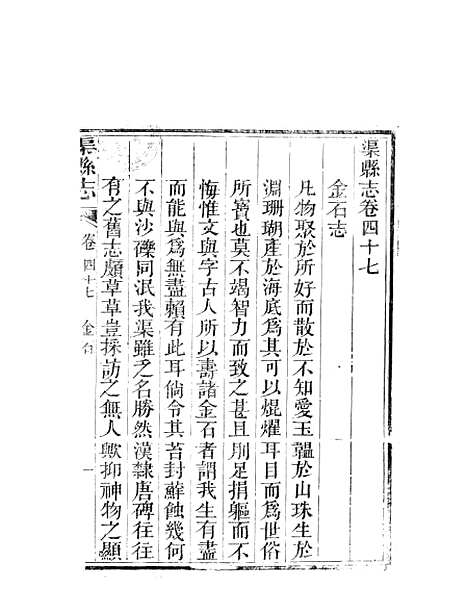 渠縣志卷四十七
金石志
凡物聚於所好而散於不知愛玉韞於山珠生於
淵珊瑚產於海底為其可以焜燿耳目而為世俗
所寶也莫不竭智力而致之甚且刖足捐軀而不
悔惟文與字古人所以壽諸金石者謂我生有盡
而能與為無盡賴有此耳倘令其苔封蘚蝕幾何
不與沙礫同泯我渠雖乏名勝然漢隸唐碑往往
有之舊志頗草草豈採訪之無人歟抑神物之顯
渠縣志 卷四十七 金石 一